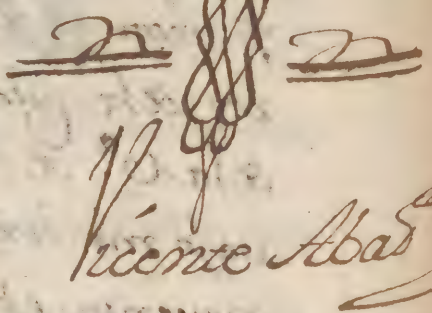 Vicente Abad